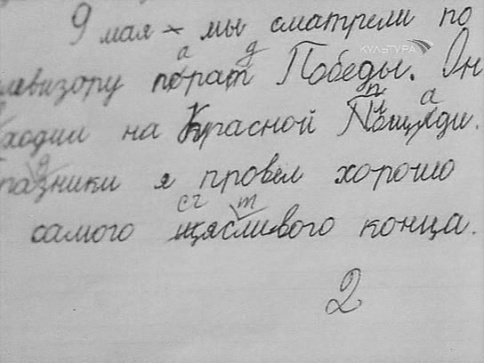 КУЛЬТУРА
9 мая - мы сматрели по
левизору порат Победы. Он
а д
ходил на Красной Пощяди.
п л а
празники я провел хорошо
д
самого щясливого конца.
сч т
2